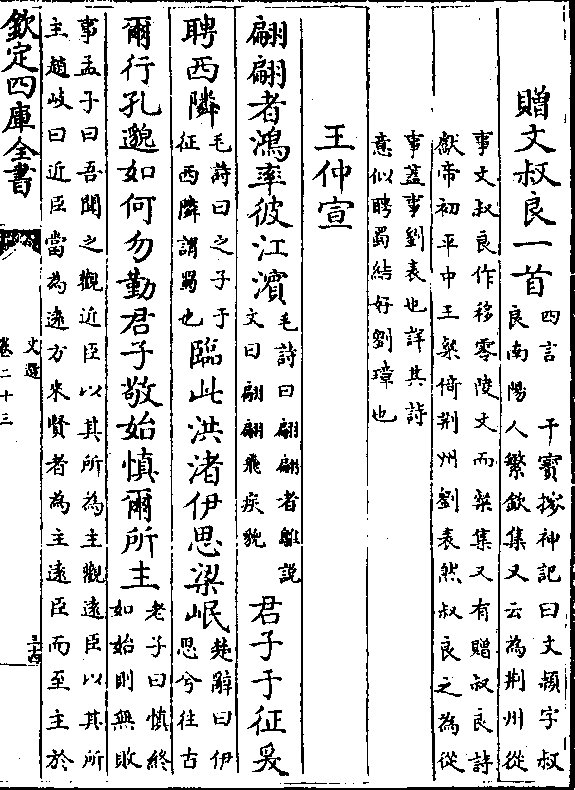 贈文叔良一首四言　干寶搜神記曰文穎字叔
良南陽人繁欽集又云為荆州從
事文叔良作移零陵文而粲集又有贈叔良詩
獻帝初平中王粲倚荆州劉表然叔良之為從
事蓋事劉表也詳其詩
意似聘蜀結好劉璋也
王仲宣
翩翩者鴻率彼江濱毛詩曰翩翩者鵻說
文曰翩翩飛疾貌君子于征爰
聘西隣毛詩曰之子于
征西隣謂蜀也臨此洪渚伊思梁岷楚辭曰伊
思兮往古
爾行孔邈如何勿勤君子敬始慎爾所主老子曰慎終
如始則無敗
事孟子曰吾聞之觀近臣以其所為主觀遠臣以其所
主趙岐曰近臣當為遠方來賢者為主遠臣而至主於
欽定四庫全書
文選
卷二十三
三十四